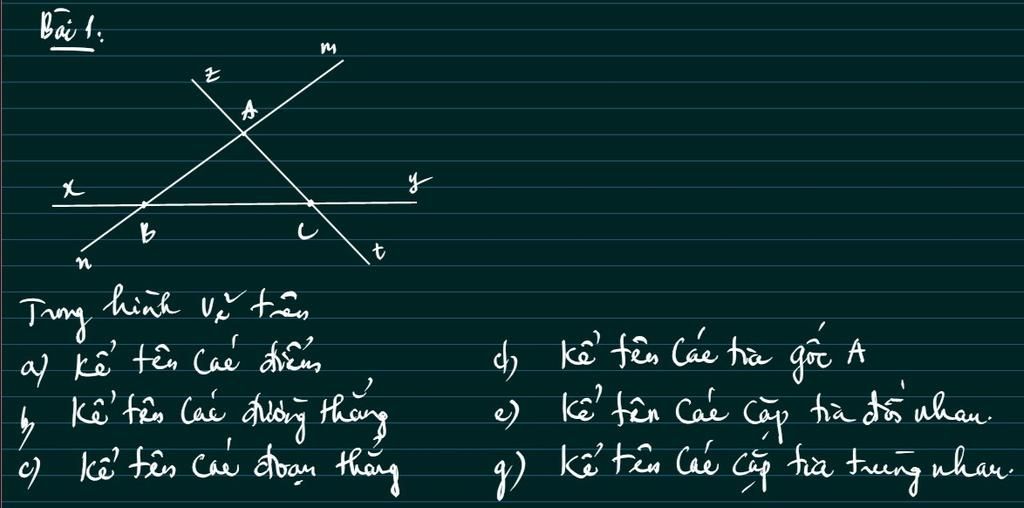 Bài 1:
m
z
A
x
y
B
C
n
t
Trong hình vẽ trên
a) Kể tên các điểm
b, Kể tên các đường thẳng
c) Kể tên các đoạn thẳng
d) Kể tên các tia gốc A
e) Kể tên các cặp tia đối nhau.
g) Kể tên các cặp tia trùng nhau.